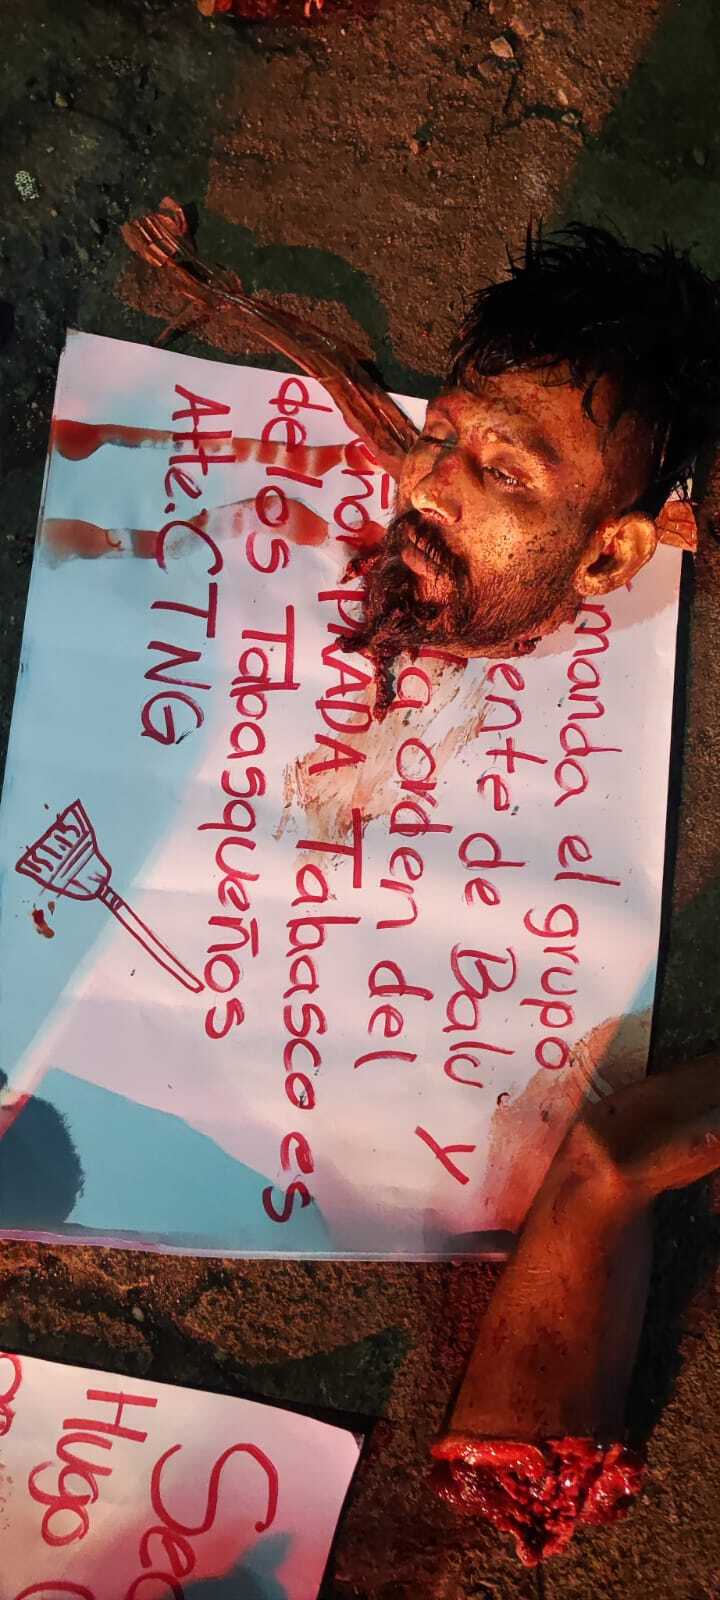 manda el grupo
de Balú y
la orden del
PRADA Tabasco es
de los Tabasqueños
Atte. CTNG
Hugo